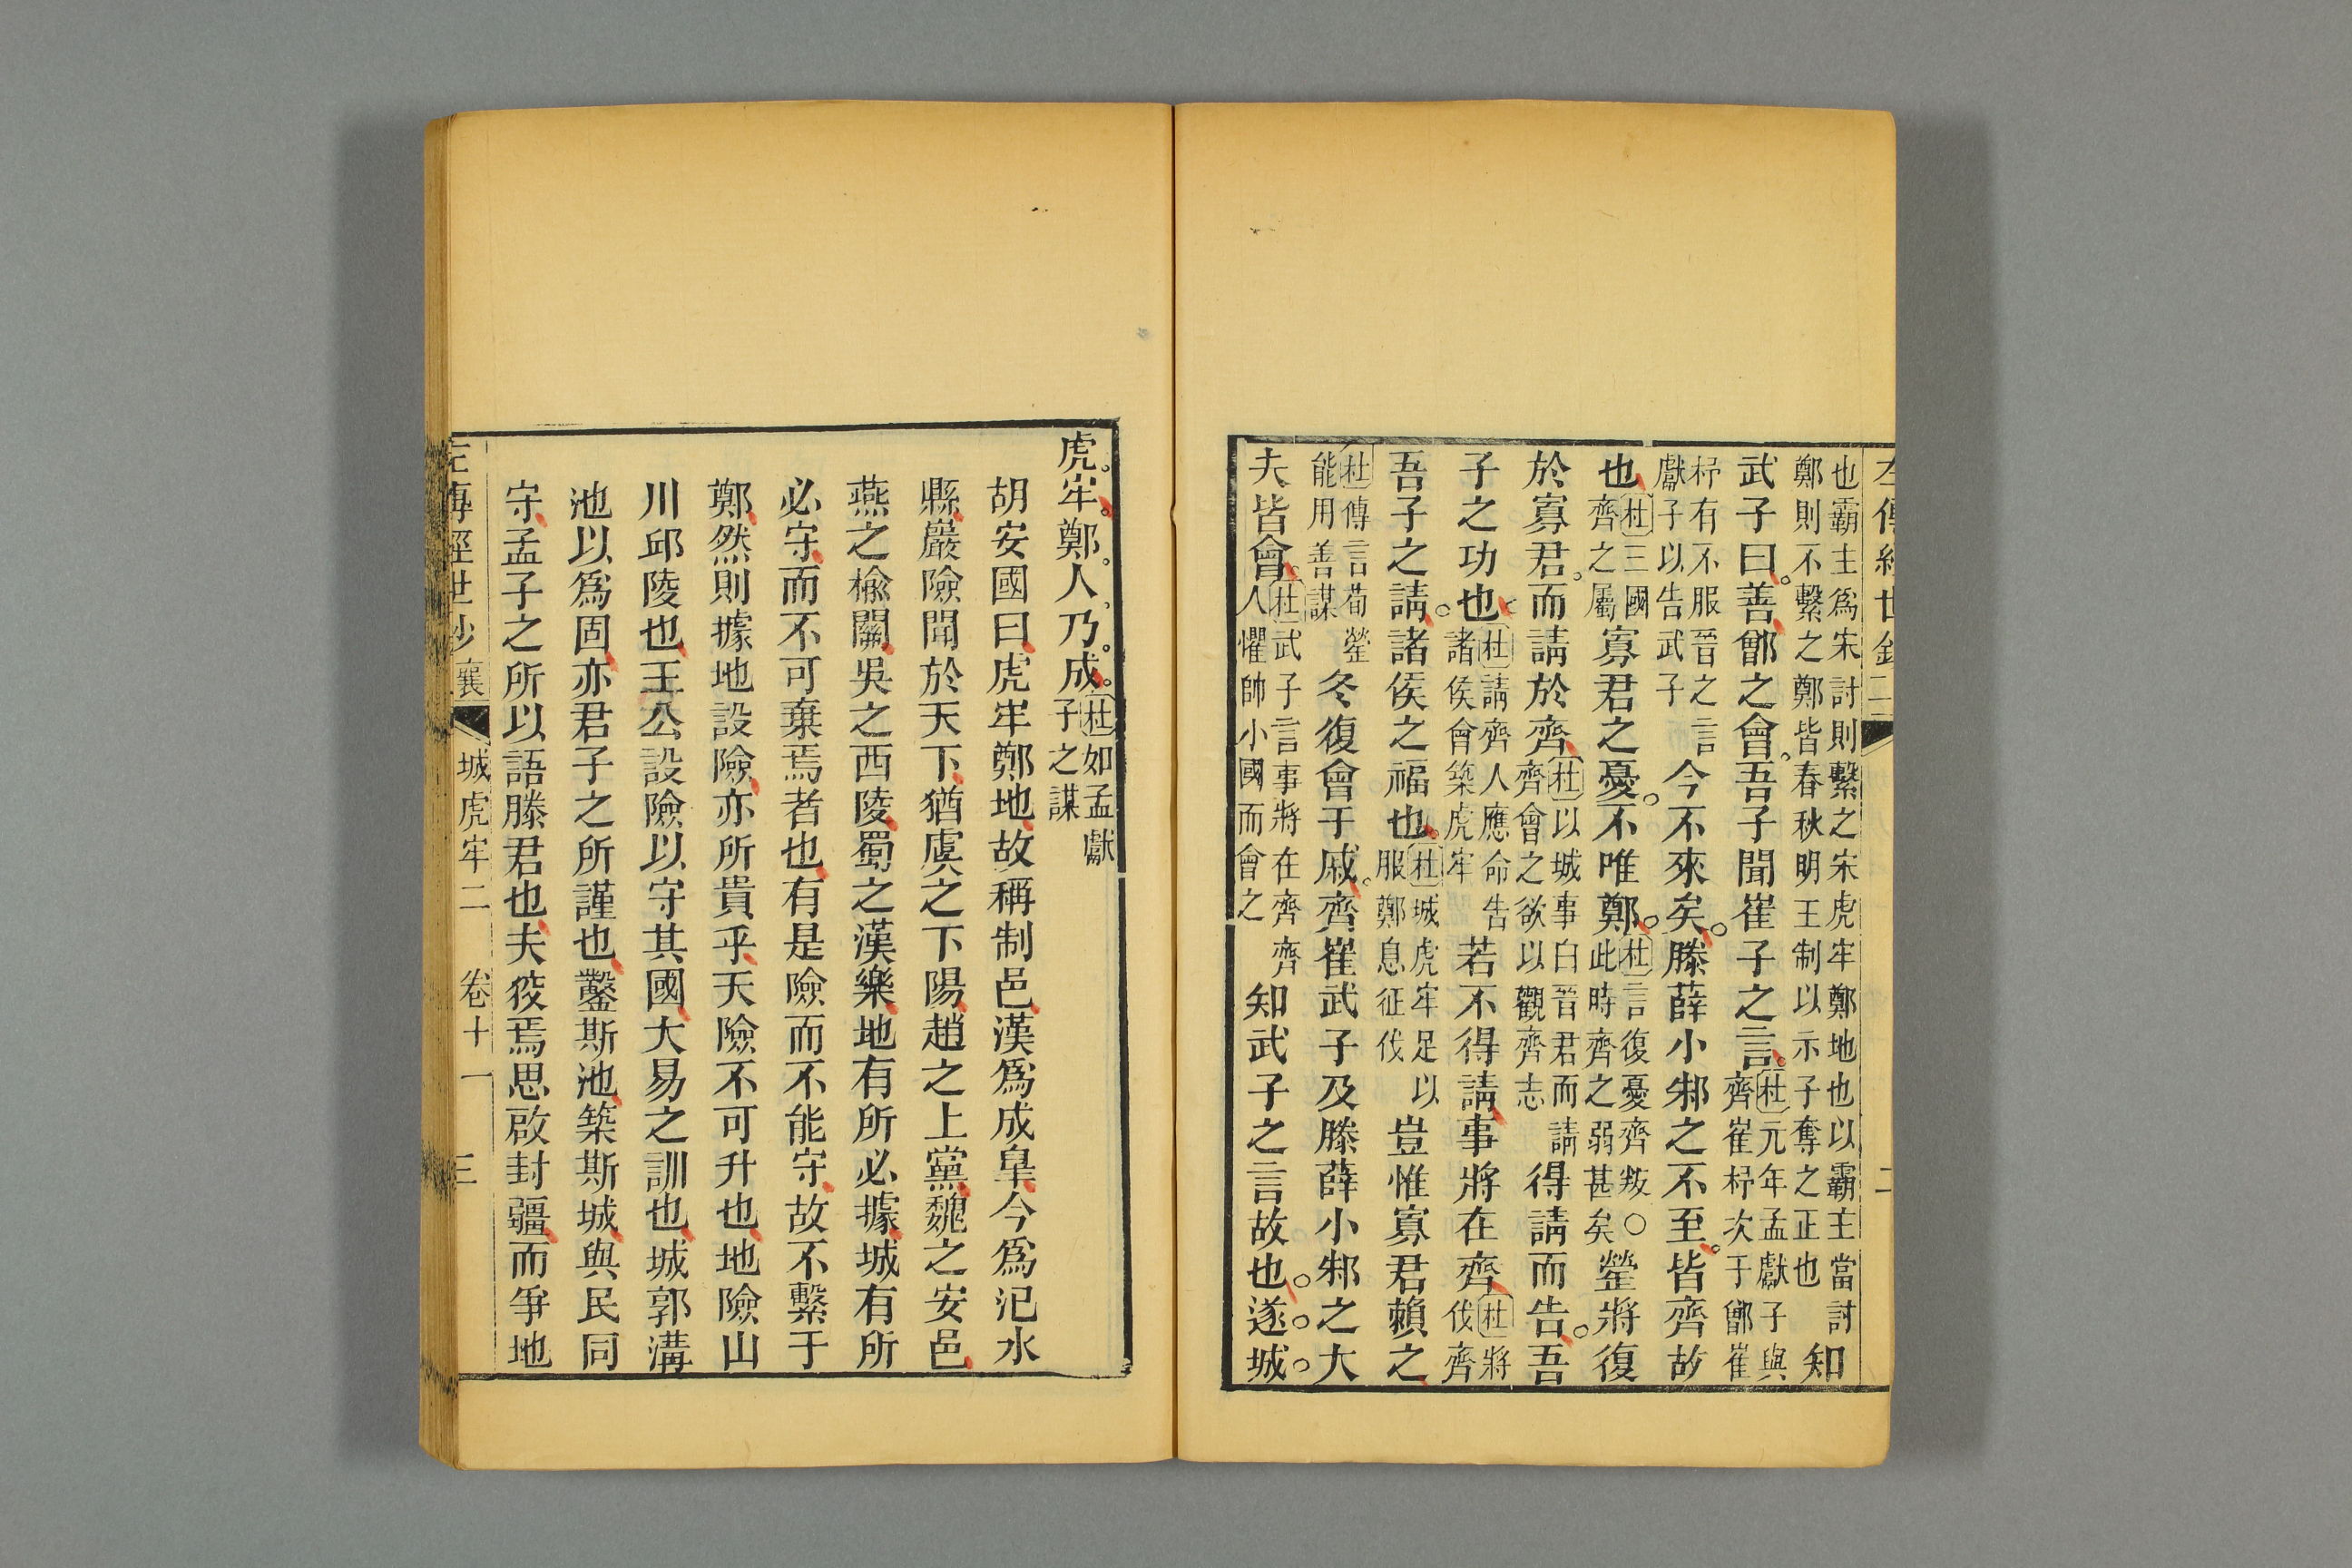 左傳經世鈔 二
也霸主爲宋討則繫之宋虎牢鄭地也以霸主當討
鄭則不繫之鄭皆春秋明王制以示子奪之正也
知
武子曰善鄫之會吾子聞崔子之言
杜元年孟獻子與
齊崔杼次于鄫崔
杼有不服晉之言
獻子以告武子
今不來矣滕薛小邾之不至皆齊故
也
杜三國
齊之屬
寡君之憂不唯鄭
杜言復憂齊叛〇
此時齊之弱甚矣
罃將復
於寡君而請於齊
杜以城事白晉君而請
齊會之欲以觀齊志
得請而告吾
子之功也
杜請齊人應命告
諸侯會築虎牢
若不得請事將在齊
杜將
伐齊
吾子之請諸侯之福也
杜城虎牢足以
服鄭息征伐
豈惟寡君賴之
杜傳言荀罃
能用善謀
冬復會于戚齊崔武子及滕薛小邾之大
夫皆會
杜武子言事將在齊齊
人懼帥小國而會之
知武子之言故也遂城
虎牢鄭人乃成
杜如孟獻
子之謀
胡安國曰虎牢鄭地故稱制邑漢爲成皐今爲汜水
縣巖險聞於天下猶虞之下陽趙之上黨魏之安邑
燕之榆關吳之西陵蜀之漢樂地有所必據城有所
必守而不可棄焉者也有是險而不能守故不繫于
鄭然則據地設險亦所貴乎天險不可升也地險山
川邱陵也王公設險以守其國大易之訓也城郭溝
池以爲固亦君子之所謹也鑿斯池築斯城與民同
守孟子之所以語滕君也夫狡焉思啟封疆而爭地
左傳經世鈔 襄 城虎牢二 卷十一 三